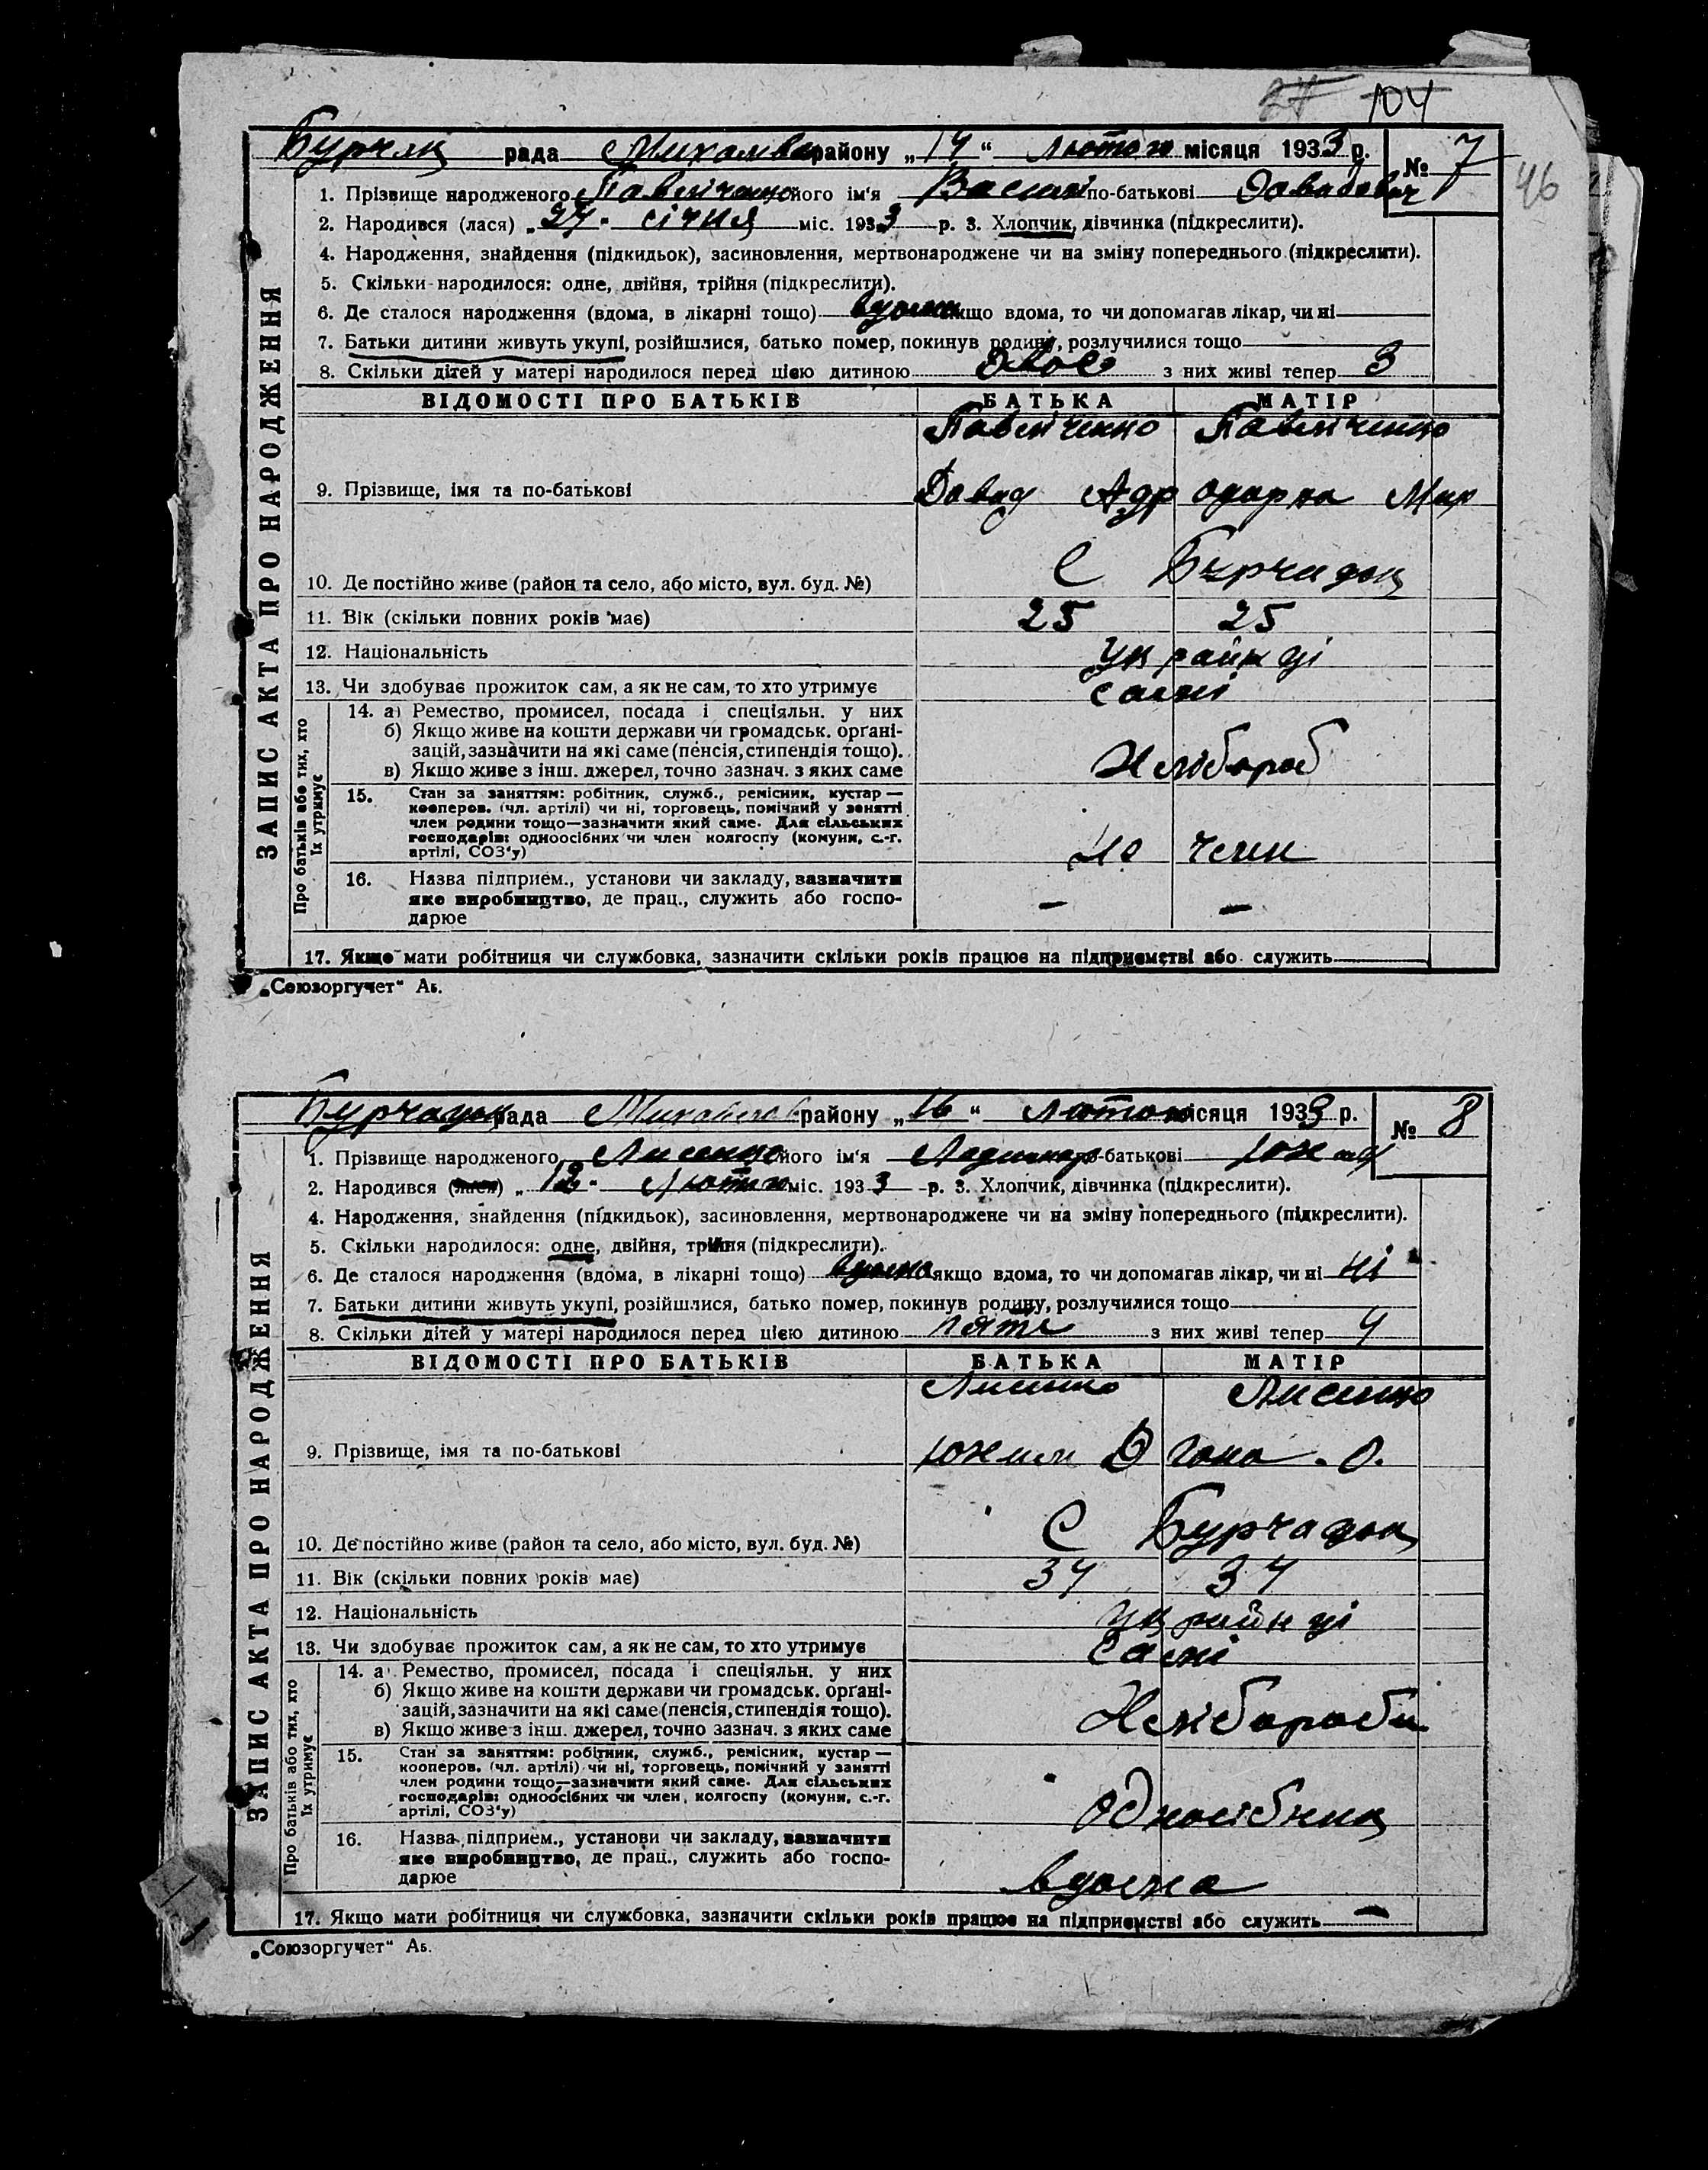 104
46
Бурчак рада Михайлівс району „14“ лютого місяця 1933 р. № 7
1. Прізвище народженого Павліченко його ім'я Василь по-батькові Давидович
2. Народився (лася) „27“ січня міс. 1933 р. 3. Хлопчик, дівчинка (підкреслити).
4. Народження, знайдення (підкидьок), засиновлення, мертвонароджене чи на зміну попереднього (підкреслити).
5. Скільки народилося: одне, двійня, трійня (підкреслити).
6. Де сталося народження (вдома, в лікарні тощо) вдома якщо вдома, то чи допомагав лікар, чи ні
7. Батьки дитини живуть укупі, розійшлися, батько помер, покинув родину, розлучилися тощо
8. Скільки дітей у матері народилося перед цією дитиною двоє з них живі тепер 3
ВІДОМОСТІ ПРО БАТЬКІВ БАТЬКА МАТІР
Павліченко Павліченко
9. Прізвище, імя та по-батькові Давид Адр Одарка Мик
10. Де постійно живе (район та село, або місто, вул. буд. №) С Бурчацьк
11. Вік (скільки повних років має) 25 25
12. Національність українці
13. Чи здобуває прожиток сам, а як не сам, то хто утримує самі
14. а) Ремество, промисел, посада і спеціяльн. у них
б) Якщо живе на кошти держави чи громадськ. орґані-
зацій, зазначити на які саме (пенсія, стипендія тощо).
в) Якщо живе з інш. джерел, точно зазнач. з яких саме Хлібороб
15. Стан за заняттям: робітник, служб., ремісник, кустар —
кооперов. (чл. артілі) чи ні, торговець, помічний у занятті
член родини тощо—зазначити який саме. Для сільських
господарів: одноосібних чи член колгоспу (комуни, с.-г.
артілі, СОЗ'у) член
16. Назва підприєм., установи чи закладу, зазначити
яке виробництво, де прац., служить або госпо- — —
дарює
17. Якщо мати робітниця чи службовка, зазначити скільки років працює на підприємстві або служить
ЗАПИС АКТА ПРО НАРОДЖЕННЯ
Про батьків або тих, хто
їх утримує
„Союзоргучет“ Аб.
Бурчацьк рада Михайлів району „16“ лютого місяця 1933 р. № 8
1. Прізвище народженого Лисенко його ім'я по-батькові Юхим
2. Народився (лася) „12“ Лютого міс. 1933 р. 3. Хлопчик, дівчинка (підкреслити).
4. Народження, знайдення (підкидьок), засиновлення, мертвонароджене чи на зміну попереднього (підкреслити).
5. Скільки народилося: одне, двійня, трійня (підкреслити).
6. Де сталося народження (вдома, в лікарні тощо) вдома якщо вдома, то чи допомагав лікар, чи ні ні
7. Батьки дитини живуть укупі, розійшлися, батько помер, покинув родину, розлучилися тощо
8. Скільки дітей у матері народилося перед цією дитиною пяте з них живі тепер 4
ВІДОМОСТІ ПРО БАТЬКІВ БАТЬКА МАТІР
Лисенко Лисенко
9. Прізвище, імя та по-батькові Юхим О.
10. Де постійно живе (район та село, або місто, вул. буд. №) С Бурчацьк
11. Вік (скільки повних років має) 34 34
12. Національність українці
13. Чи здобуває прожиток сам, а як не сам, то хто утримує самі
14. а) Ремество, промисел, посада і спеціяльн. у них
б) Якщо живе на кошти держави чи громадськ. орґані-
зацій, зазначити на які саме (пенсія, стипендія тощо).
в) Якщо живе з інш. джерел, точно зазнач. з яких саме Хлібороби
15. Стан за заняттям: робітник, служб., ремісник, кустар —
кооперов. (чл. артілі) чи ні, торговець, помічний у занятті
член родини тощо—зазначити який саме. Для сільських
господарів: одноосібних чи член колгоспу (комуни, с.-г.
артілі, СОЗ'у) одноосібник
16. Назва підприєм., установи чи закладу, зазначити
яке виробництво, де прац., служить або госпо-
дарює вдома
17. Якщо мати робітниця чи службовка, зазначити скільки років працює на підприємстві або служить —
ЗАПИС АКТА ПРО НАРОДЖЕННЯ
Про батьків або тих, хто
їх утримує
„Союзоргучет“ Аб.